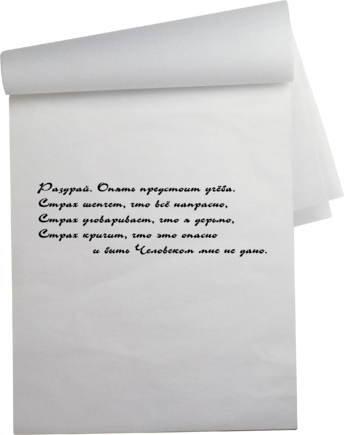 Раздрай. Опять предстоит учёба.
Страх шепчет, что всё напрасно,
Страх уговаривает, что я дерьмо,
Страх кричит, что это опасно
и быть Человеком мне не дано.